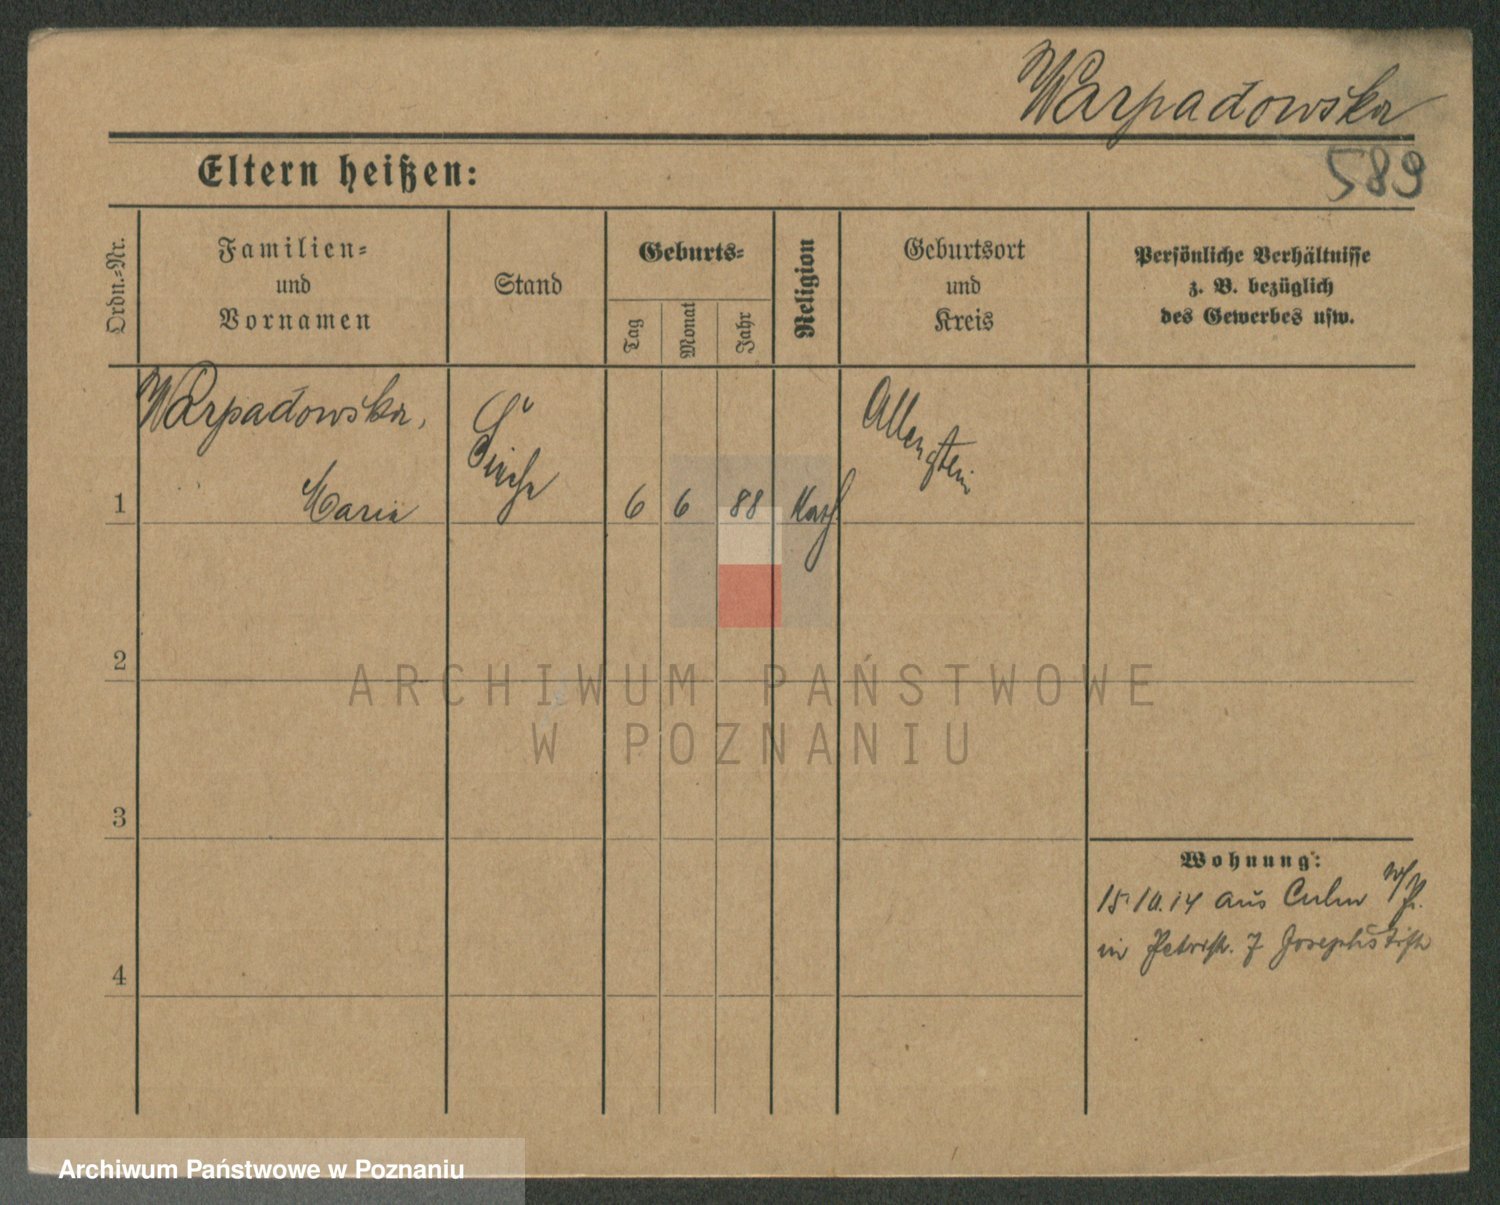 Warpadowska
Eltern heißen:
589
Ordn.-Nr.
Familien-
und
Vornamen
Stand
Geburts-
Tag
Monat
Jahr
Religion
Geburtsort
und
Kreis
Persönliche Verhältnisse
z. B. bezüglich
des Gewerbes usw.
1
Warpadowska,
Maria
6 6 88 Kath
Allenstein
2
ARCHIWUM PAŃSTWOWE
W POZNANIU
3
Wohnung:
15.10.14 aus Culm W/Pr.
in Petristr. 7 Josephstift
4
Archiwum Państwowe w Poznaniu